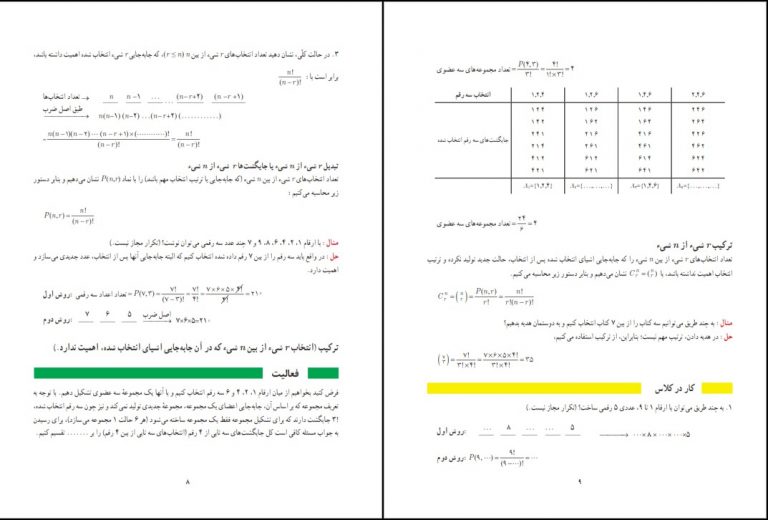 ۳. در حالت کلّی، نشان دهید تعداد انتخاب‌های r شیء از بین n (r ≤ n)، که جابه‌جایی r شیء انتخاب شده اهمیت داشته باشد،
برابر است با : n!/(n−r)!
تعداد انتخاب‌ها → n n−1 ... ... (n−r+2) (n−r+1)
طبق اصل ضرب → n(n−1)(n−2) ...(n−r+2)(............)
= n(n−1)(n−2)⋯(n−r+1)×(...........)!/(n−r)! = n!/(n−r)!
تبدیل r شیء از n شیء یا جایگشت‌ها r شیء از n شیء
تعداد انتخاب‌های r شیء از بین n شیء (که جابه‌جایی یا ترتیب انتخاب مهم باشد) را با نماد P(n,r) نشان می‌دهیم و بنابر دستور
زیر محاسبه می‌کنیم :
P(n,r) = n!/(n−r)!
مثال : با ارقام ۱، ۲، ۴، ۶، ۸، ۹ و ۷ چند عدد سه رقمی می‌توان نوشت؟ (تکرار مجاز نیست.)
حل : در واقع باید سه رقم را از بین ۷ رقم داده شده انتخاب کنیم که البته جابه‌جایی آنها پس از انتخاب، عدد جدیدی می‌سازد و
اهمیت دارد.
روش اول: تعداد اعداد سه رقمی = P(۷,۳) = ۷!/(۷−۳)! = ۷!/۴! = ۷×۶×۵×۴!/۴! = ۲۱۰
روش دوم: ۷ ۶ ۵ اصل ضرب → ۷×۶×۵=۲۱۰
ترکیب (انتخاب r شیء از بین n شیء که در آن جابه‌جایی اشیای انتخاب شده، اهمیت ندارد.)
فعالیت
فرض کنید بخواهیم از میان ارقام ۱، ۲، ۴ و ۶ سه رقم انتخاب کنیم و با آنها یک مجموعهٔ سه عضوی تشکیل دهیم. با توجه به
تعریف مجموعه که بر اساس آن، جابه‌جایی اعضای یک مجموعه، مجموعهٔ جدیدی تولید نمی‌کند و نیز چون سه رقم انتخاب شده،
۳! جایگشت دارند که برای تشکیل مجموعه فقط یک مجموعه ساخته می‌شود (هر ۶ حالت ۱ مجموعه می‌سازد)، برای رسیدن
به جواب مسئله کافی است کل جایگشت‌های سه تایی از ۴ رقم (انتخاب‌های سه تایی از بین ۴ رقم) را بر ....... تقسیم کنیم.
۸
تعداد مجموعه‌های سه عضوی = P(۴,۳)/۳! = ۴!/۱!×۳! = ۴
انتخاب سه رقم ۱,۲,۴ ۱,۲,۶ ۱,۴,۶ ۲,۴,۶
جایگشت‌های سه رقم انتخاب شده
۱ ۲ ۴ ۱ ۲ ۶ ۱ ۴ ۶ ۲ ۴ ۶
۱ ۴ ۲ ۱ ۶ ۲ ۱ ۶ ۴ ۲ ۶ ۴
۲ ۴ ۱ ۲ ۱ ۶ ۴ ۱ ۶ ۴ ۲ ۶
۲ ۱ ۴ ۲ ۶ ۱ ۴ ۶ ۱ ۴ ۶ ۲
۴ ۱ ۲ ۶ ۱ ۲ ۶ ۱ ۴ ۶ ۲ ۴
۴ ۲ ۱ ۶ ۲ ۱ ۶ ۴ ۱ ۶ ۴ ۲
A₁={۱,۲,۴} A₂={...,...,...} A₃={۱,۴,۶} A₄={...,...,...}
تعداد مجموعه‌های سه عضوی = ۲۴/۶ = ۴
ترکیب r شیء از n شیء
تعداد انتخاب‌های r شیء از بین n شیء را که جابه‌جایی اشیای انتخاب شده پس از انتخاب، حالت جدید تولید نکرده و ترتیب
انتخاب اهمیت نداشته باشد، با C_r^n = (n r) نشان می‌دهیم و بنابر دستور زیر محاسبه می‌کنیم.
C_r^n = (n r) = P(n,r)/r! = n!/r!(n−r)!
مثال : به چند طریق می‌توانیم سه کتاب را از بین ۷ کتاب انتخاب کنیم و به دوستمان هدیه بدهیم؟
حل : در هدیه دادن، ترتیب مهم نیست؛ بنابراین، از ترکیب استفاده می‌کنیم.
(۷ ۳) = ۷!/۳!×۴! = ۷×۶×۵×۴!/۳!×۴! = ۳۵
کار در کلاس
۱. به چند طریق می‌توان با ارقام ۱ تا ۹، عددی ۵ رقمی ساخت؟ (تکرار مجاز نیست.)
روش اول: ... ۸ ... ... ۵ → ...×۸×...×...×۵
روش دوم: P(۹,...) = ۹!/(۹−...)! = ...
۹